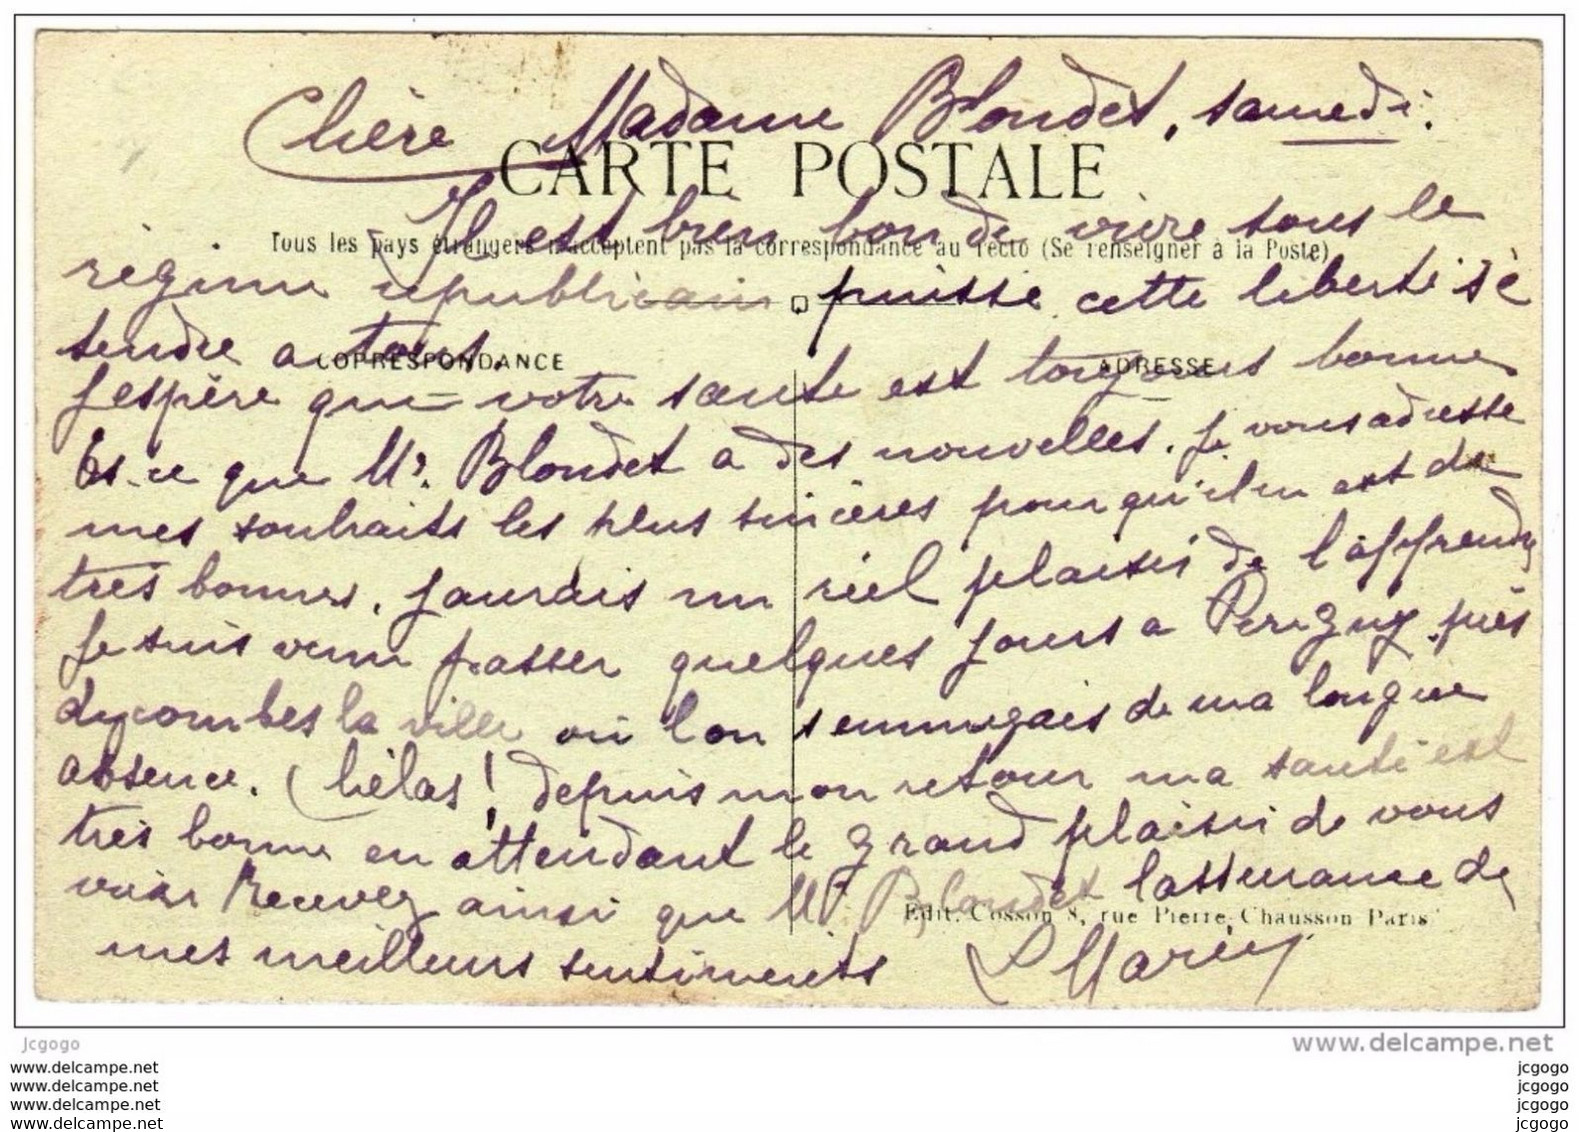 Chère Madame Blondet, samedi.
CARTE POSTALE
Il est bien bon de vivre sous le
Tous les pays étrangers n'acceptent pas la correspondance au recto (Se renseigner à la Poste)
régime républicain puisse cette liberté s'é
tendre a tous.
CORRESPONDANCE ADRESSE
J'espère que votre sante est toujours bonne
Es-ce que Mr. Blondet a des nouvelles. Je vous adresse
mes souhaits les plus sincères pour qu'il en est de
très bonnes. J'aurais un réel plaisir de l'apprendre
Je suis venu passer quelques jours a Perigny près
d'ycombes la ville où l'on s'ennuyais de ma longue
absence. (hélas! depuis mon retour ma santé est
très bonne en attendant le grand plaisir de vous
voir Recevez ainsi que Mr Blondet l'assurance de
Edit. Cosson 8, rue Pierre Chausson Paris
mes meilleurs sentiments
jcgogo
www.delcampe.net
www.delcampe.net jcgogo
www.delcampe.net jcgogo
www.delcampe.net jcgogo
www.delcampe.net jcgogo